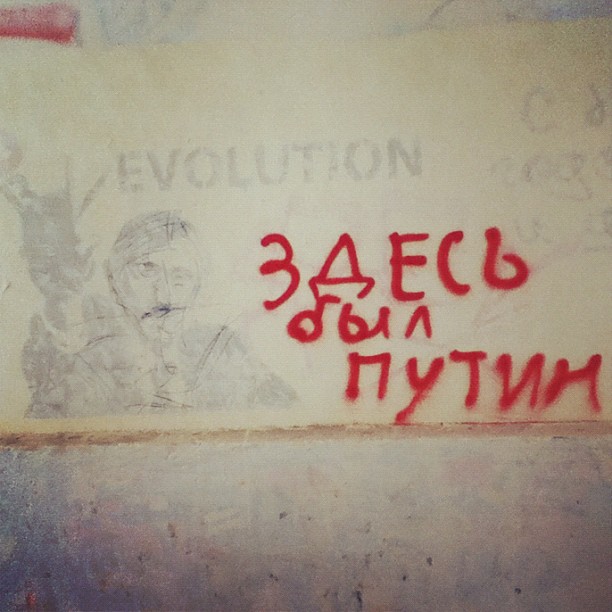 EVOLUTION
ЗДЕСЬ
был
ПУТИН